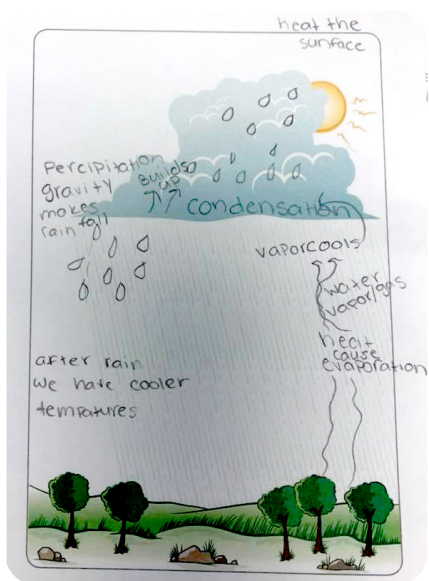 heat the
surface
Percipitation
gravity
makes
rain fall
Builds
up
condensation
vapor cools
water
vapor/gas
heat
cause
evaporation
after rain
we have cooler
tempatures